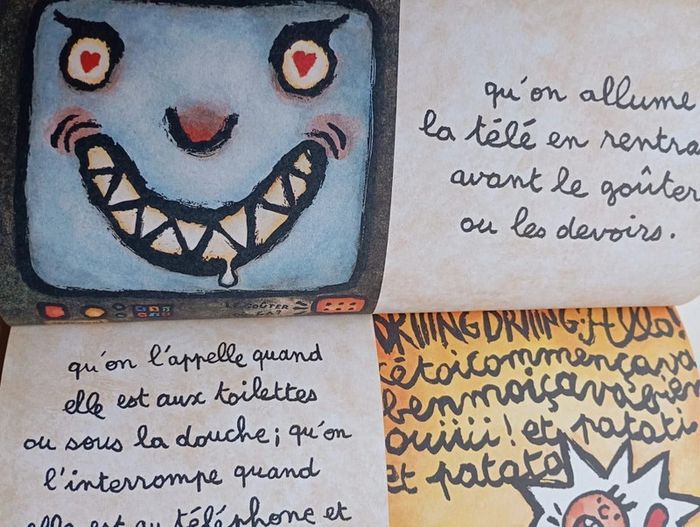 qu'on allume
la télé en
avant le goûter
ou les devoirs.
LE GOÛTER
qu'on l'appelle quand
elle est aux toilettes
ou sous la douche; qu'on
l'interrompe quand
elle est au téléphone et
DRIIINGDRIIING! Allo!
benmoiçava
ouiiii! et patati
et patata